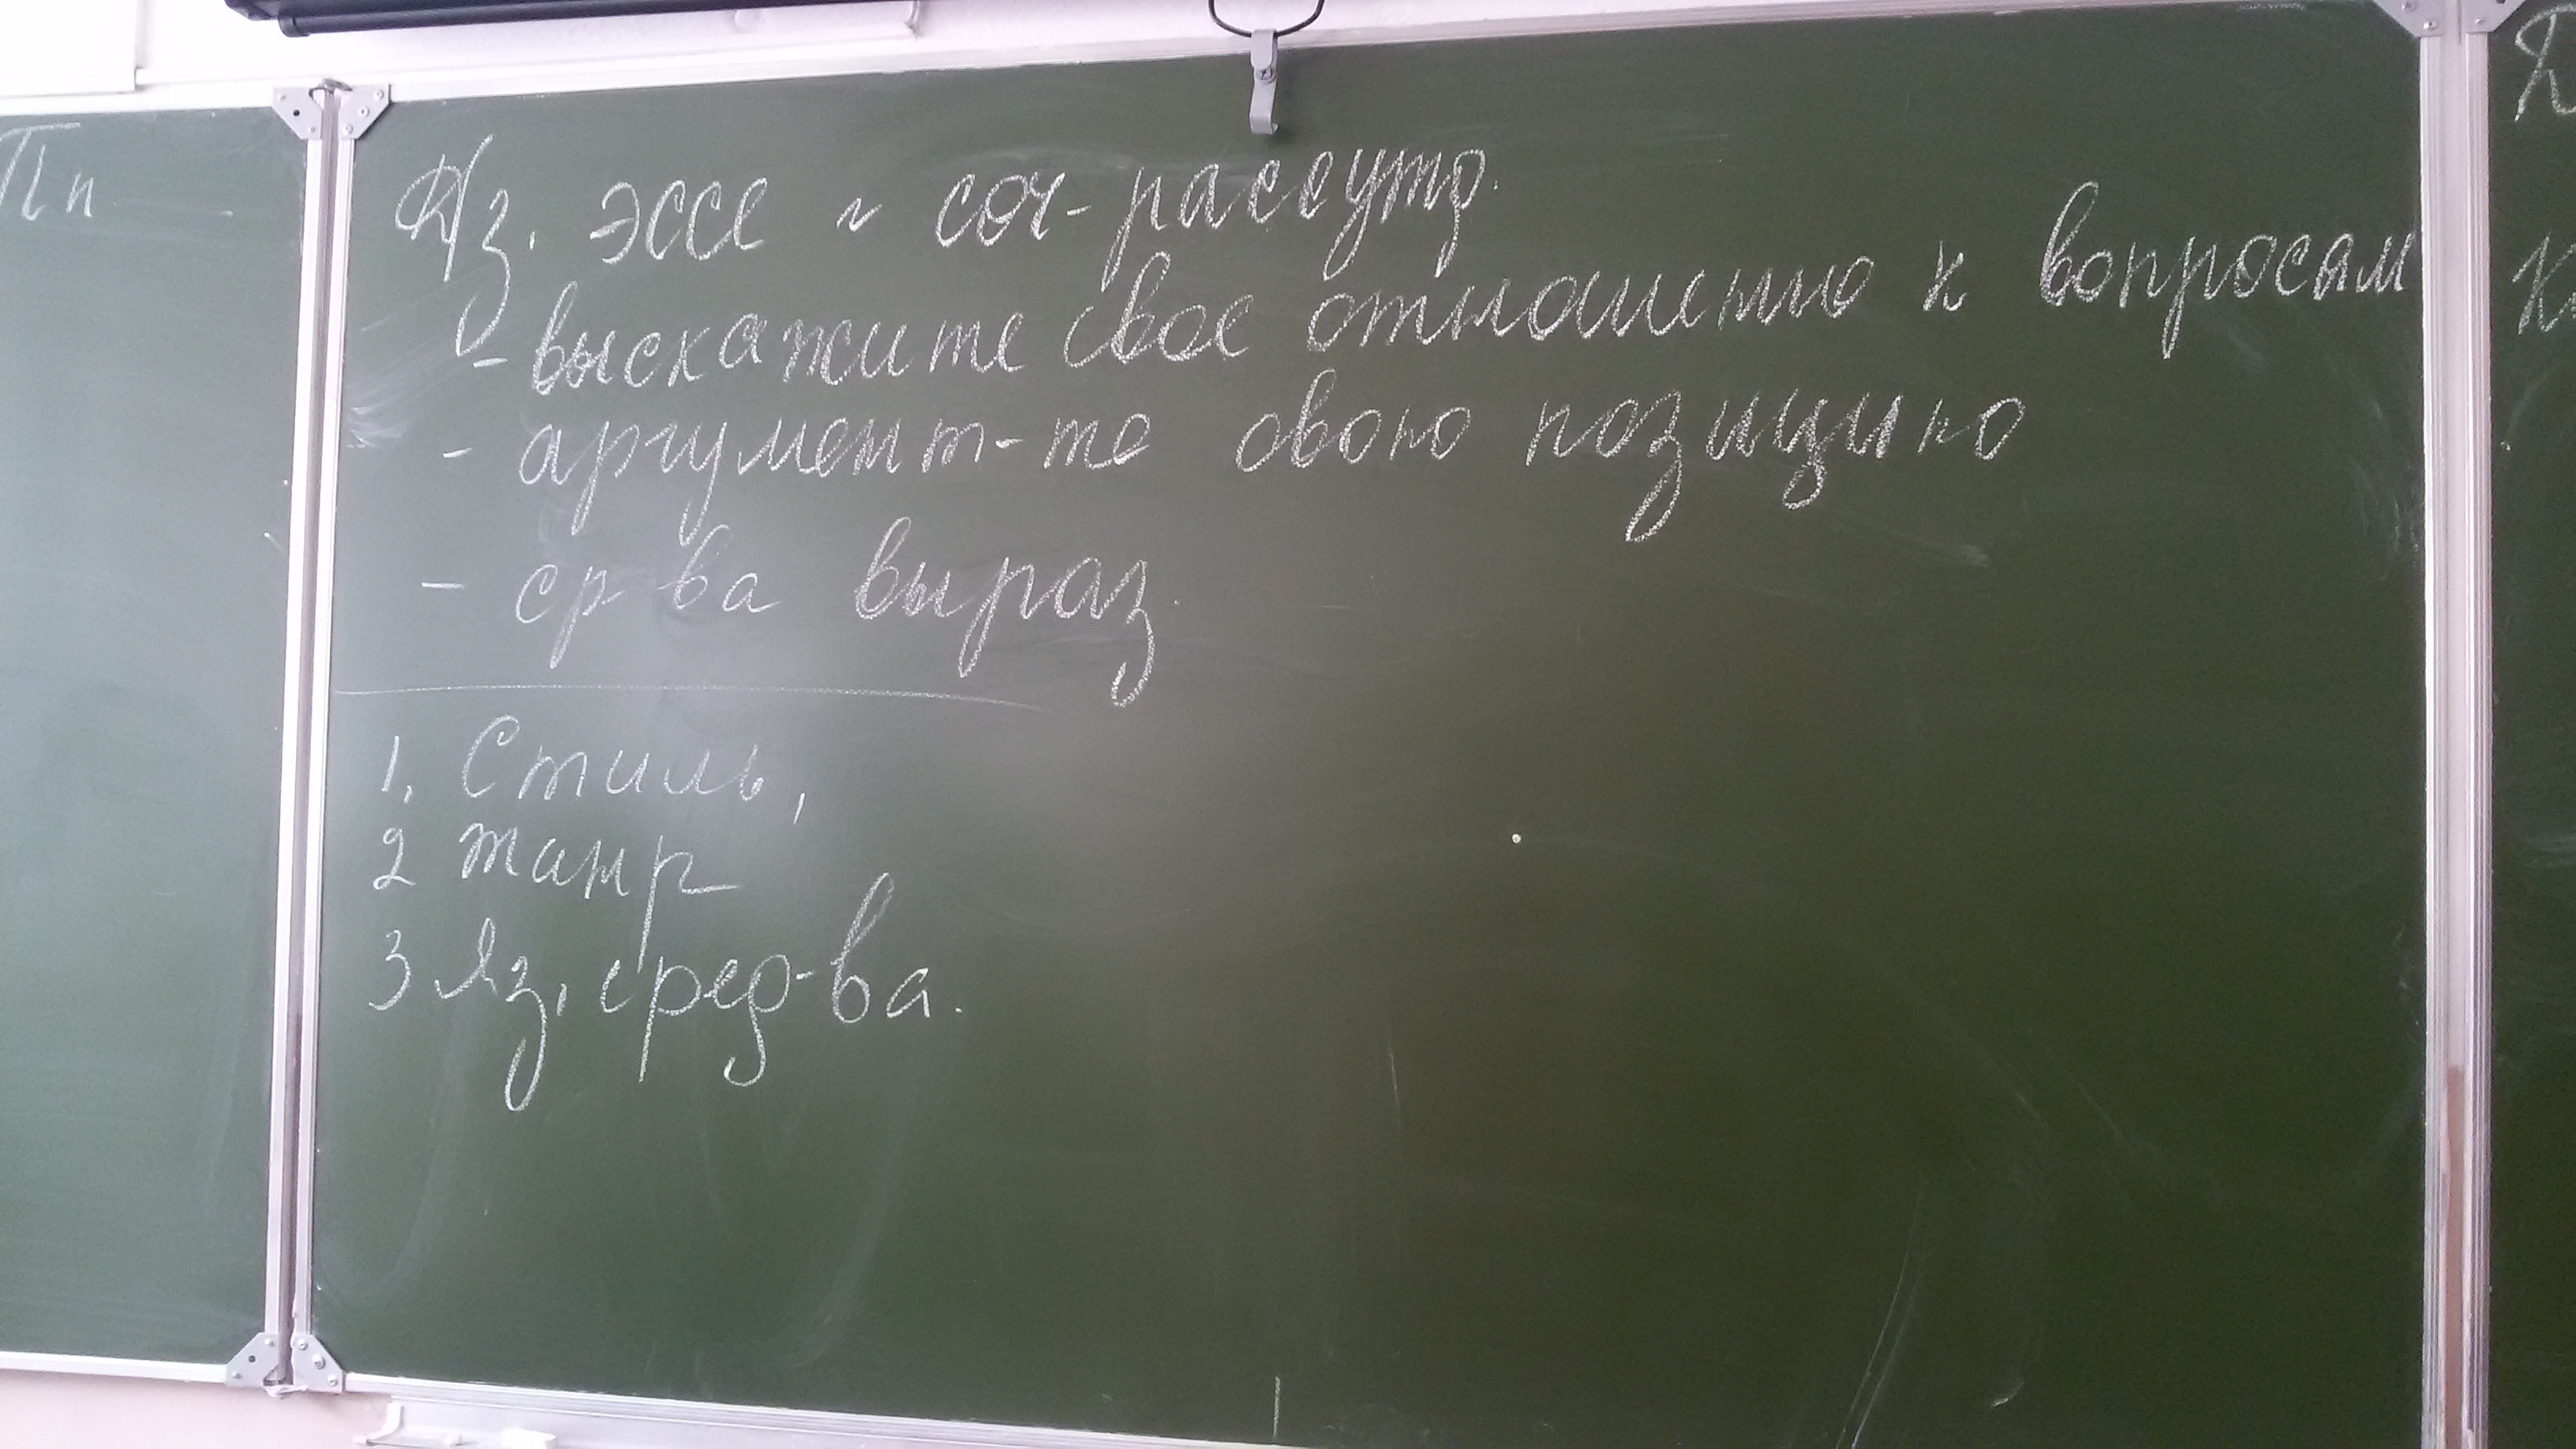 Пп
Д/з. эссе ~ соч-рассужд.
- выскажите свое отношению к вопросам
- аргумент-те свою позицию
- ср-ва выраз.
1. Стиль,
2 жанр
3 Яз. сред-ва.